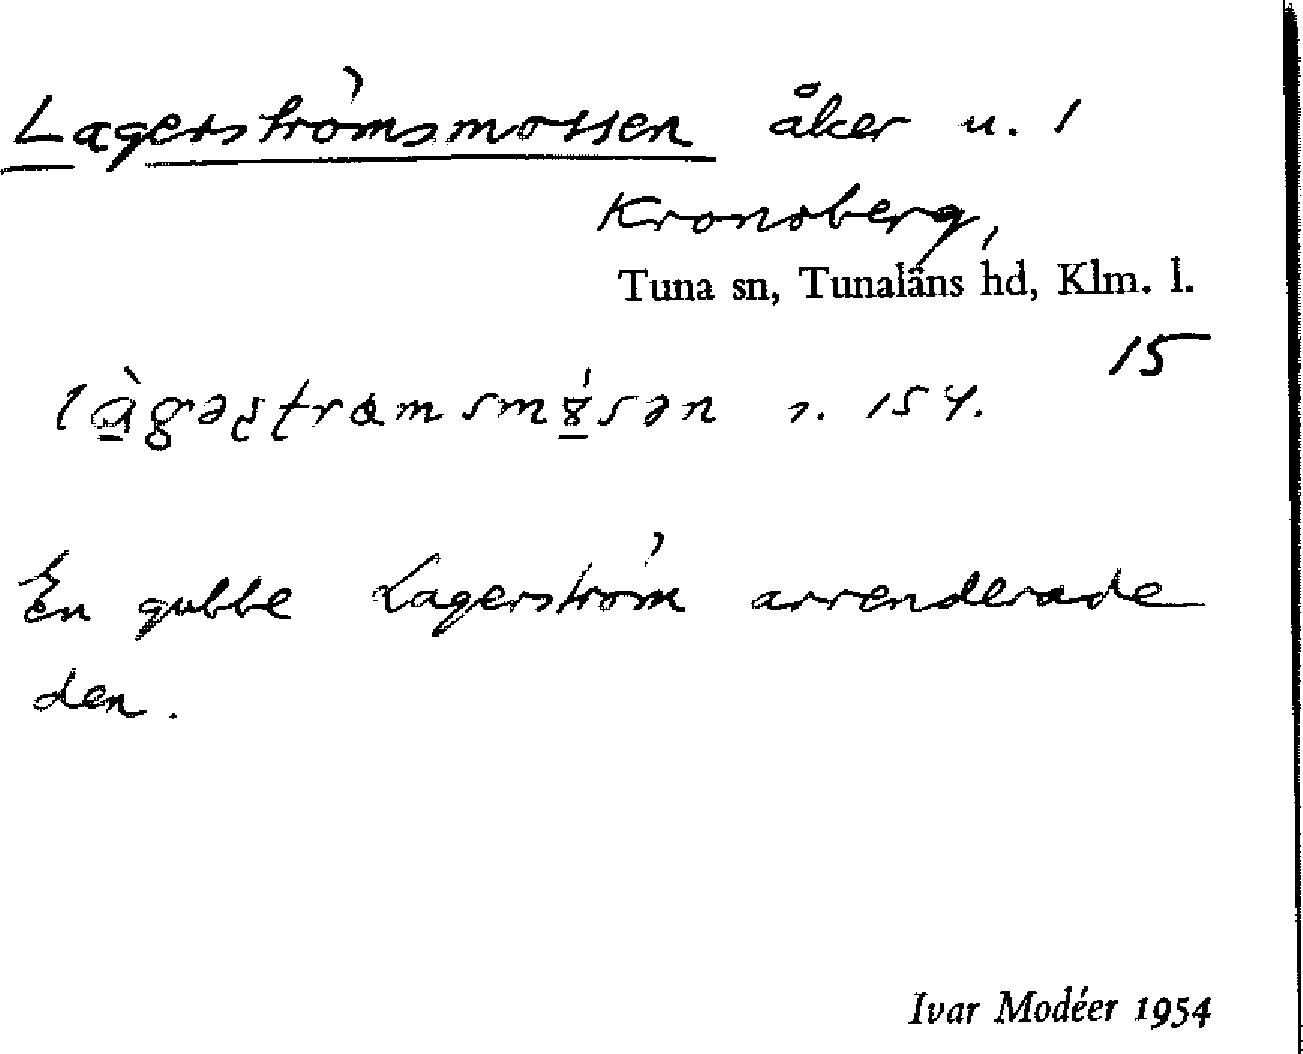 Lagerströmsmossen åker u. 1
Kronoberg,
Tuna sn, Tunaläns hd, Klm. l.
15
154.
En gubbe Lagerström arrenderade
den.
Ivar Modéer 1954